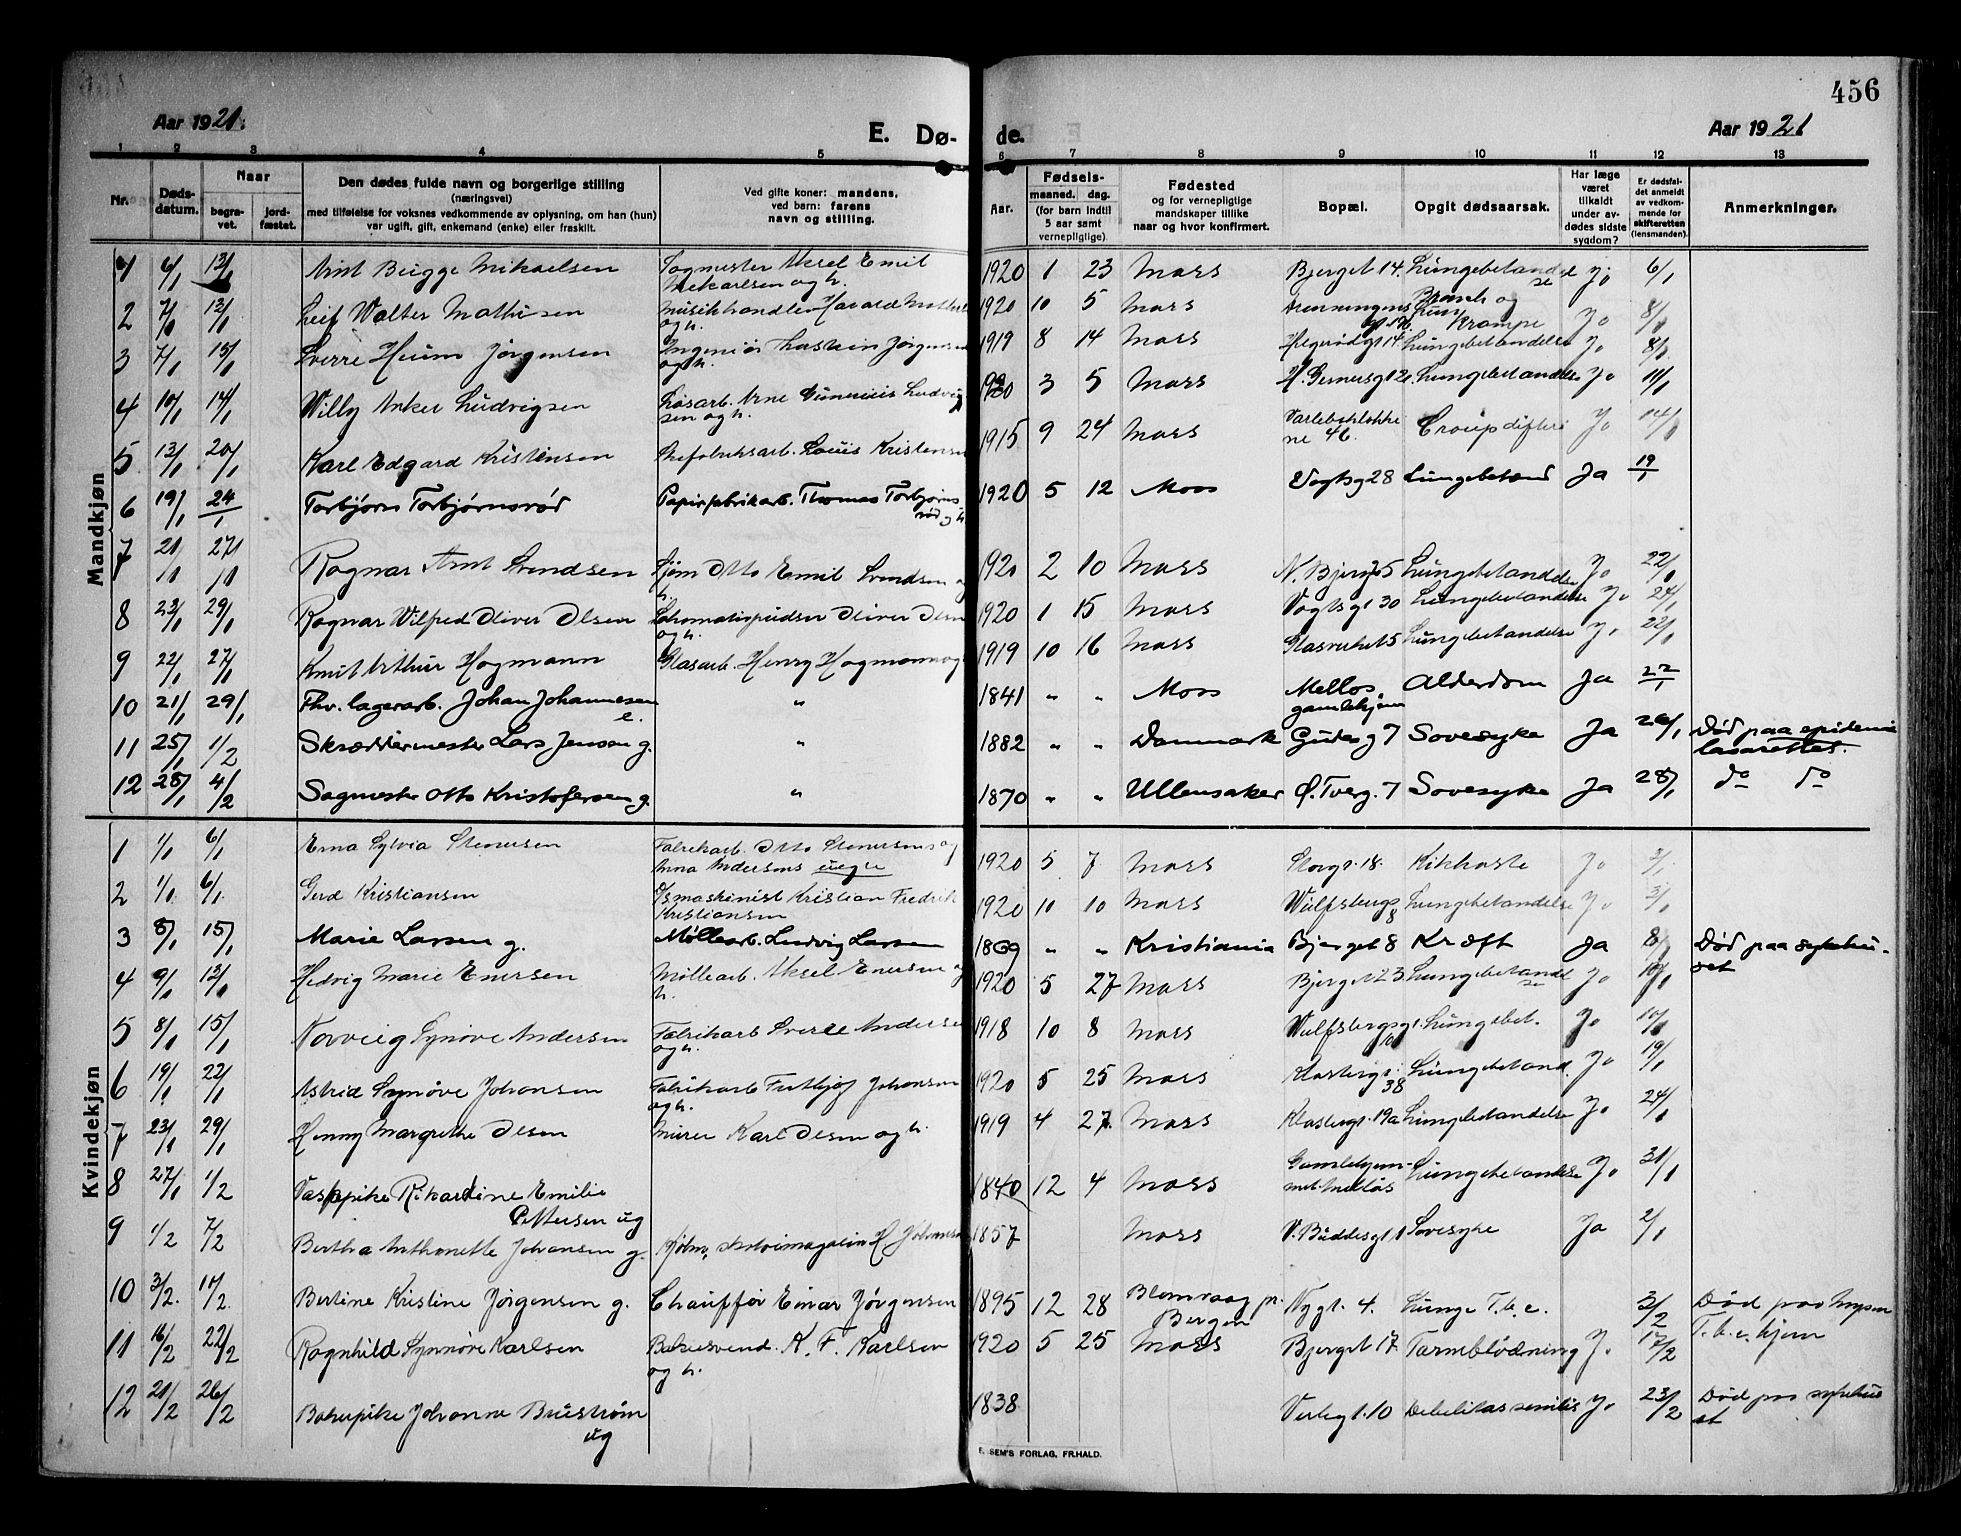 456
Aar 1921. E. Dø- de. Aar 1921
1 2 3 4 5 6 7 8 9 10 11 12 13
Nr. Døds-datum. Naar begra-vet. jord-fæstet. Den dødes fulde navn og borgerlige stilling (næringsvei) med tilføielse for voksnes vedkommende av oplysning, om han (hun) var ugift, gift, enkemand (enke) eller fraskilt. Ved gifte koner: mandens, ved barn: farens navn og stilling. Aar. Fødsels- maaned. dag. (for barn indtil 5 aar samt vernepligtige). Fødested og for vernepligtige mandskaper tillike naar og hvor konfirmert. Bopæl. Opgit dødsaarsak. Har læge været tilkaldt under av-dødes sidste sygdom? Er dødsfal-det anmeldt av vedkom-mende for skifteretten (lensmanden). Anmerkninger.
Mandkjøn
1 6/1 13/1 Arnt Brygge Mikaelsen Sagmester Aksel Emil 1920 1 23 Moss Bjerget 14. Lungebetændel se Ja 6/1
2 7/1 13/1 Leif Walter Mathisen Musikhandler Havard og h. 1920 10 5 Moss Bronch og Krampe Ja 8/1
3 7/1 15/1 Sverre Heum Jørgensen Ingeniør Jørgensen og h. 1919 8 14 Moss Lungebetændelse Ja 8/1
4 10/1 14/1 Willy Anker Ludvigsen Løsarb. Arne Gunerius Ludvig sen og h. 1920 3 5 Moss Lungebetændelse Ja 11/1
5 13/1 20/1 Karl Edgard Kristensen Louis Kristensen 1915 9 24 Moss Varlebakløkke ne 46. Croup difteri Ja 14/1
6 19/1 24/1 Torbjørn Torbjørnsrød Papirfabrikarb. Thomas Torbjørns rød og h 1920 5 12 Moss Vogtsg 28 Lungebetænd Ja 19/1
7 21/1 27/1 Ragnar Arnt Svendsen Sjøm Otto Emil Svendsen og h. 1920 2 10 Moss N. Bjerg 5 Lungebetændelse Ja 22/1
8 23/1 29/1 Ragnar Wilfred Oliver Olsen Lokomotivpudser Oliver Olsen og h. 1920 1 15 Moss Vogtsgt 30 Lungebetændelse Ja 24/1
9 22/1 27/1 Knut Arthur Hagmann Glasarb. Henry Hagmann og 1919 10 16 Moss Glasverket 5 Lungebetændelse Ja 22/1
10 21/1 29/1 Fhv. lagerarb. Johan Johannesen e. " 1841 " " Moss Mellos gamlehjem Alderdom Ja 22/1
11 25/1 1/2 Skræddermester Lars Jensen g. " 1882 " " Danmark Gudesg 7 Sovesyke Ja 26/1 Død paa epidemi lasarettet.
12 28/1 4/2 Sagmester Otto Kristofersen g. " 1870 " " Ullensaker Ø. Tverg. 7 Sovesyke Ja 28/1 do do
Kvindekjøn
1 1/1 6/1 Erna Sylvia Stenersen Fabrikarb. Otto Stenersens og Anna Andersens uegte 1920 5 7 Moss Storgt. 18. Kikhoste Ja 3/1
2 1/1 6/1 Gerd Kristiansen Ismaskinist Kristian Fredrik Kristiansen 1920 11 10 Moss Wulfsbergs 8 Lungebetændelse Ja 3/1
3 8/1 15/1 Marie Larsen g. Møllearb. Ludvig Larsen 1869 " " Kristiania Bjerget 8 Kræft Ja 8/1 Død paa sykehu-set
4 9/1 13/1 Hedvig Marie Enersen Møllearb. Aksel Enersen og h. 1920 5 27 Moss Bjerget 23 Lungebetændel se Ja 10/1
5 8/1 15/1 Norveig Synøve Andersen Fabrikarb Sverre Andersen og h. 1918 10 8 Moss Wulfsbergsgt. Lungebet. Ja 10/1
6 19/1 22/1 Astrid Synøve Johansen Fabrikarb Fritjof Johansen og h. 1920 5 25 Moss 38 Lungebetænd. Ja 19/1
7 23/1 29/1 Henny Margrethe Olsen Murer Karl Olsen og h. 1919 4 27 Moss 19a Lungebetændelse Ja 24/1
8 27/1 1/2 Vaskepike Rikardine Emilie Pettersen ug 1840 12 4 Moss Gamlehjem-met Melløs Lungebetændelse Ja 31/1
9 1/2 7/2 Bertha Anthonette Johansen g. H. Johansen 1857 Moss V. Buddesgt 1 Sovesyke Ja 2/1
10 3/2. 11/2. Bertine Kristine Jørgensen g. Chauffør Einar Jørgensen 1895 12 28 Blomvaag pr. Bergen Nygt. 4. Lunge T.b.c. 3/2 Død paa Mysen T.b.c. hjem
11 16/2 22/2 Ragnhild Synnøve Karlsen Bakersvend. K. F. Karlsen og h. 1920 5 25 Moss Bjerget 17. Tarmblødning Ja 17/2
12 21/2 26/2 Bakerpike Johanne Brustrøm ug 1838 Verlegt. 10 Debelitas senilis Ja 23/2 Død paa sykehus et
E. SEM'S FORLAG, FR.HALD.